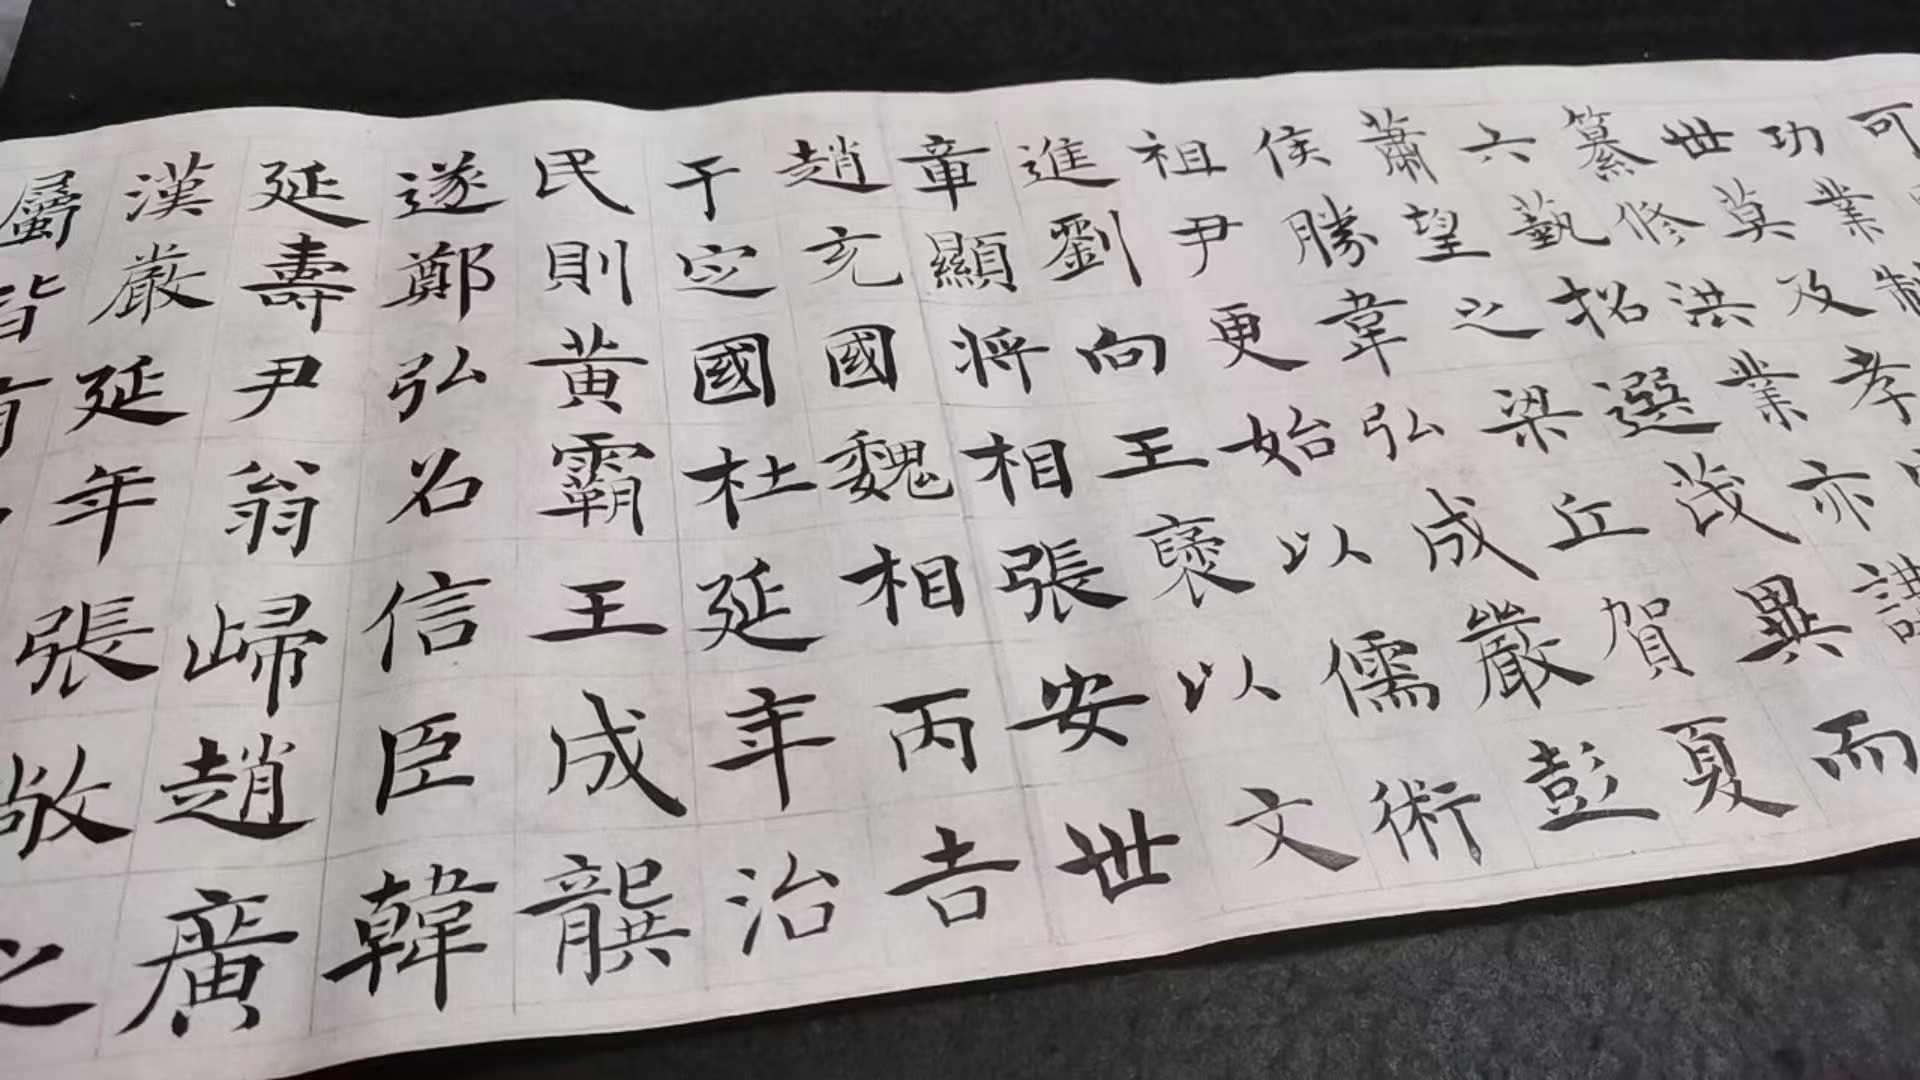 可
功業制
世莫及孝
纂修洪業亦講
六藝招選茂異而
蕭望之梁丘賀夏
侯勝韋弘成嚴彭
祖尹更始以儒術
進劉向王褒以文
章顯將相張安世
趙充國魏相丙吉
于定國杜延年治
民則黃霸王成龔
遂鄭弘名信臣韓
延壽尹翁歸趙廣
漢嚴延年張敞之
屬皆有